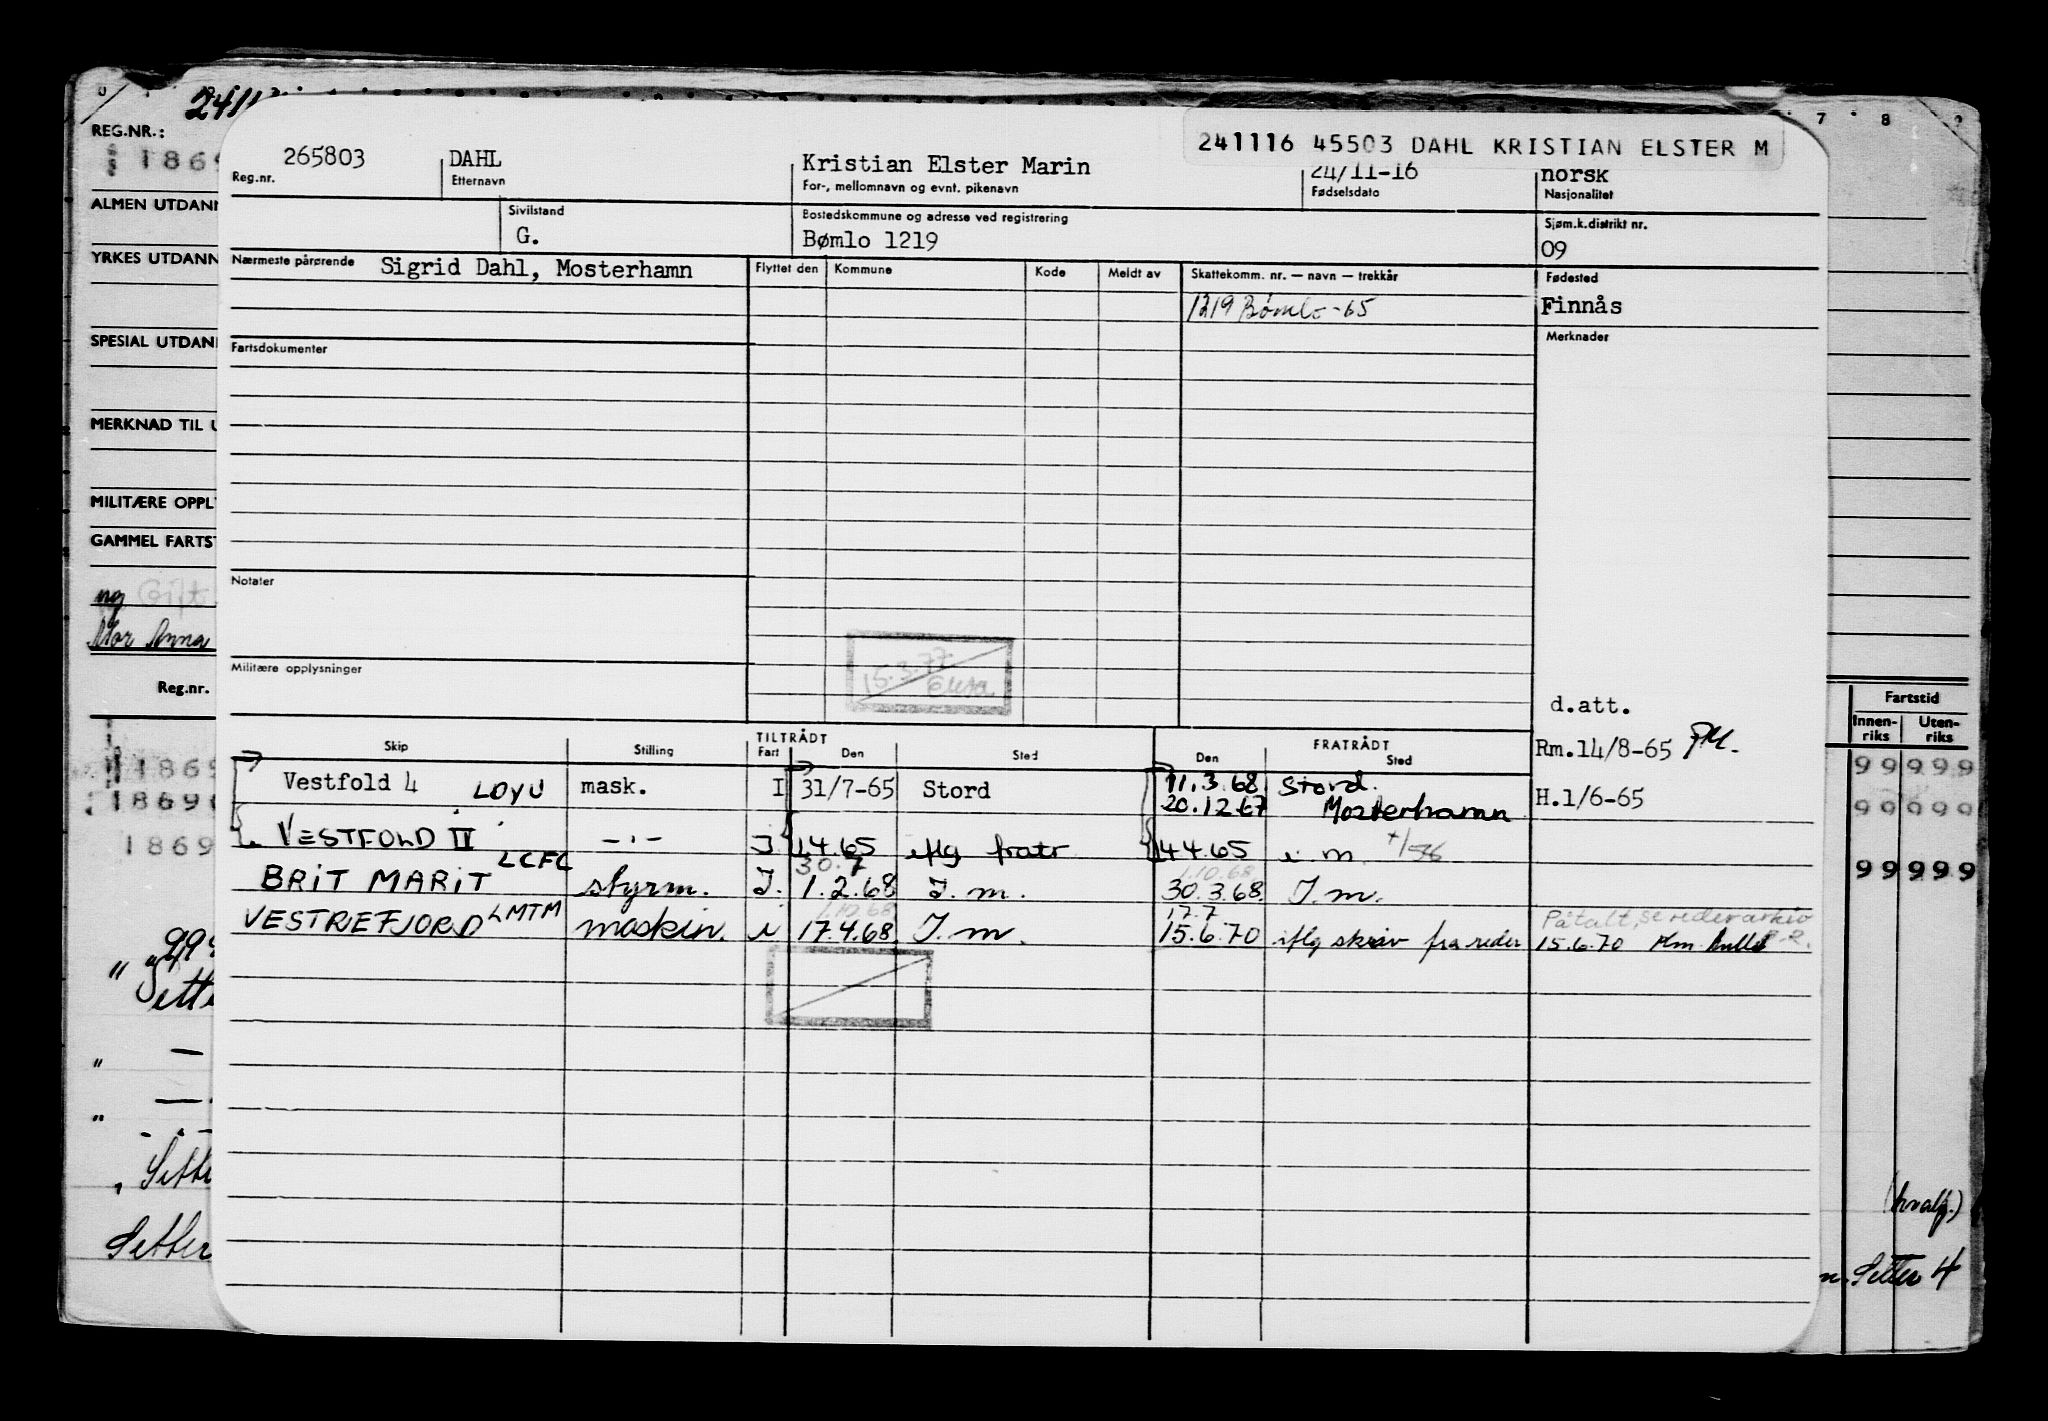 241116 45503 DAHL KRISTIAN ELSTER M
7 8 9
REG.NR.:
1869
265803 DAHL Kristian Elster Marin 24/11-16 norsk
Reg.nr. Etternavn For-, mellomnavn og evnt. pikenavn Fødselsdato Nasjonalitet
ALMEN UTDANN
Sivilstand Bostedskommune og adresse ved registrering Sjøm.k.distrikt nr.
G. Bømlo 1219 09
YRKES UTDANN
Nærmeste pårørende Sigrid Dahl, Mosterhamn Flyttet den Kommune Kode Meldt av Skattekomm. nr. — navn — trekkår Fødested
1219 Bømlo -65 Finnås
SPESIAL UTDAN
Fartsdokumenter Merknader
MERKNAD TIL U
MILITÆRE OPPL
GAMMEL FARTS
Notater
ug Gift
Mor Anna
15.3.77
Militære opplysninger
Reg.nr.
d.att.
Fartstid
Innen-riks Uten-riks
TILTRÅDT FRATRÅDT
Skip Stilling Fart Den Sted Den Sted
Rm.14/8-65
Vestfold 4 LDYU mask. I 31/7-65 Stord 11.3.68 Stord.
20.12.67 Mosterhamn
H.1/6-65
VESTFOLD II -"- I 1.4.65 iflg fratr 4.4.65 i m.
30.7 1.10.68
BRIT MARIT LCFC styrm. I. 1.2.68 I. m. 30.3.68 I. m.
1.10.68 17.7
VESTREFJORD LMTM maskin. i 17.4.68 I. m. 15.6.70 iflg skriv fra reder
Påtalt, se rederarkiv
15.6.70
1869
1869
1869
99999
99999
99999
(hvalf.)
Setter 4